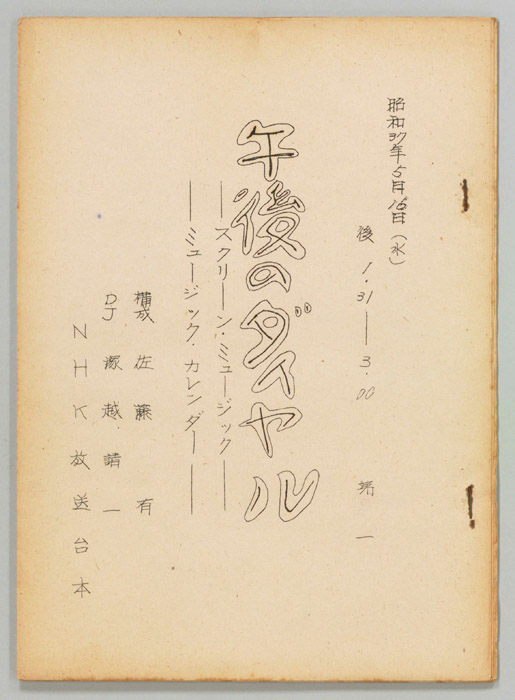 昭和37年5月16日（水）
後 1.31―3.00 第一
午後のダイヤル
―スクリーン・ミュージック―
―ミュージック・カレンダー―
構成 佐藤 有
DJ 塚越 請一
NHK放送台本